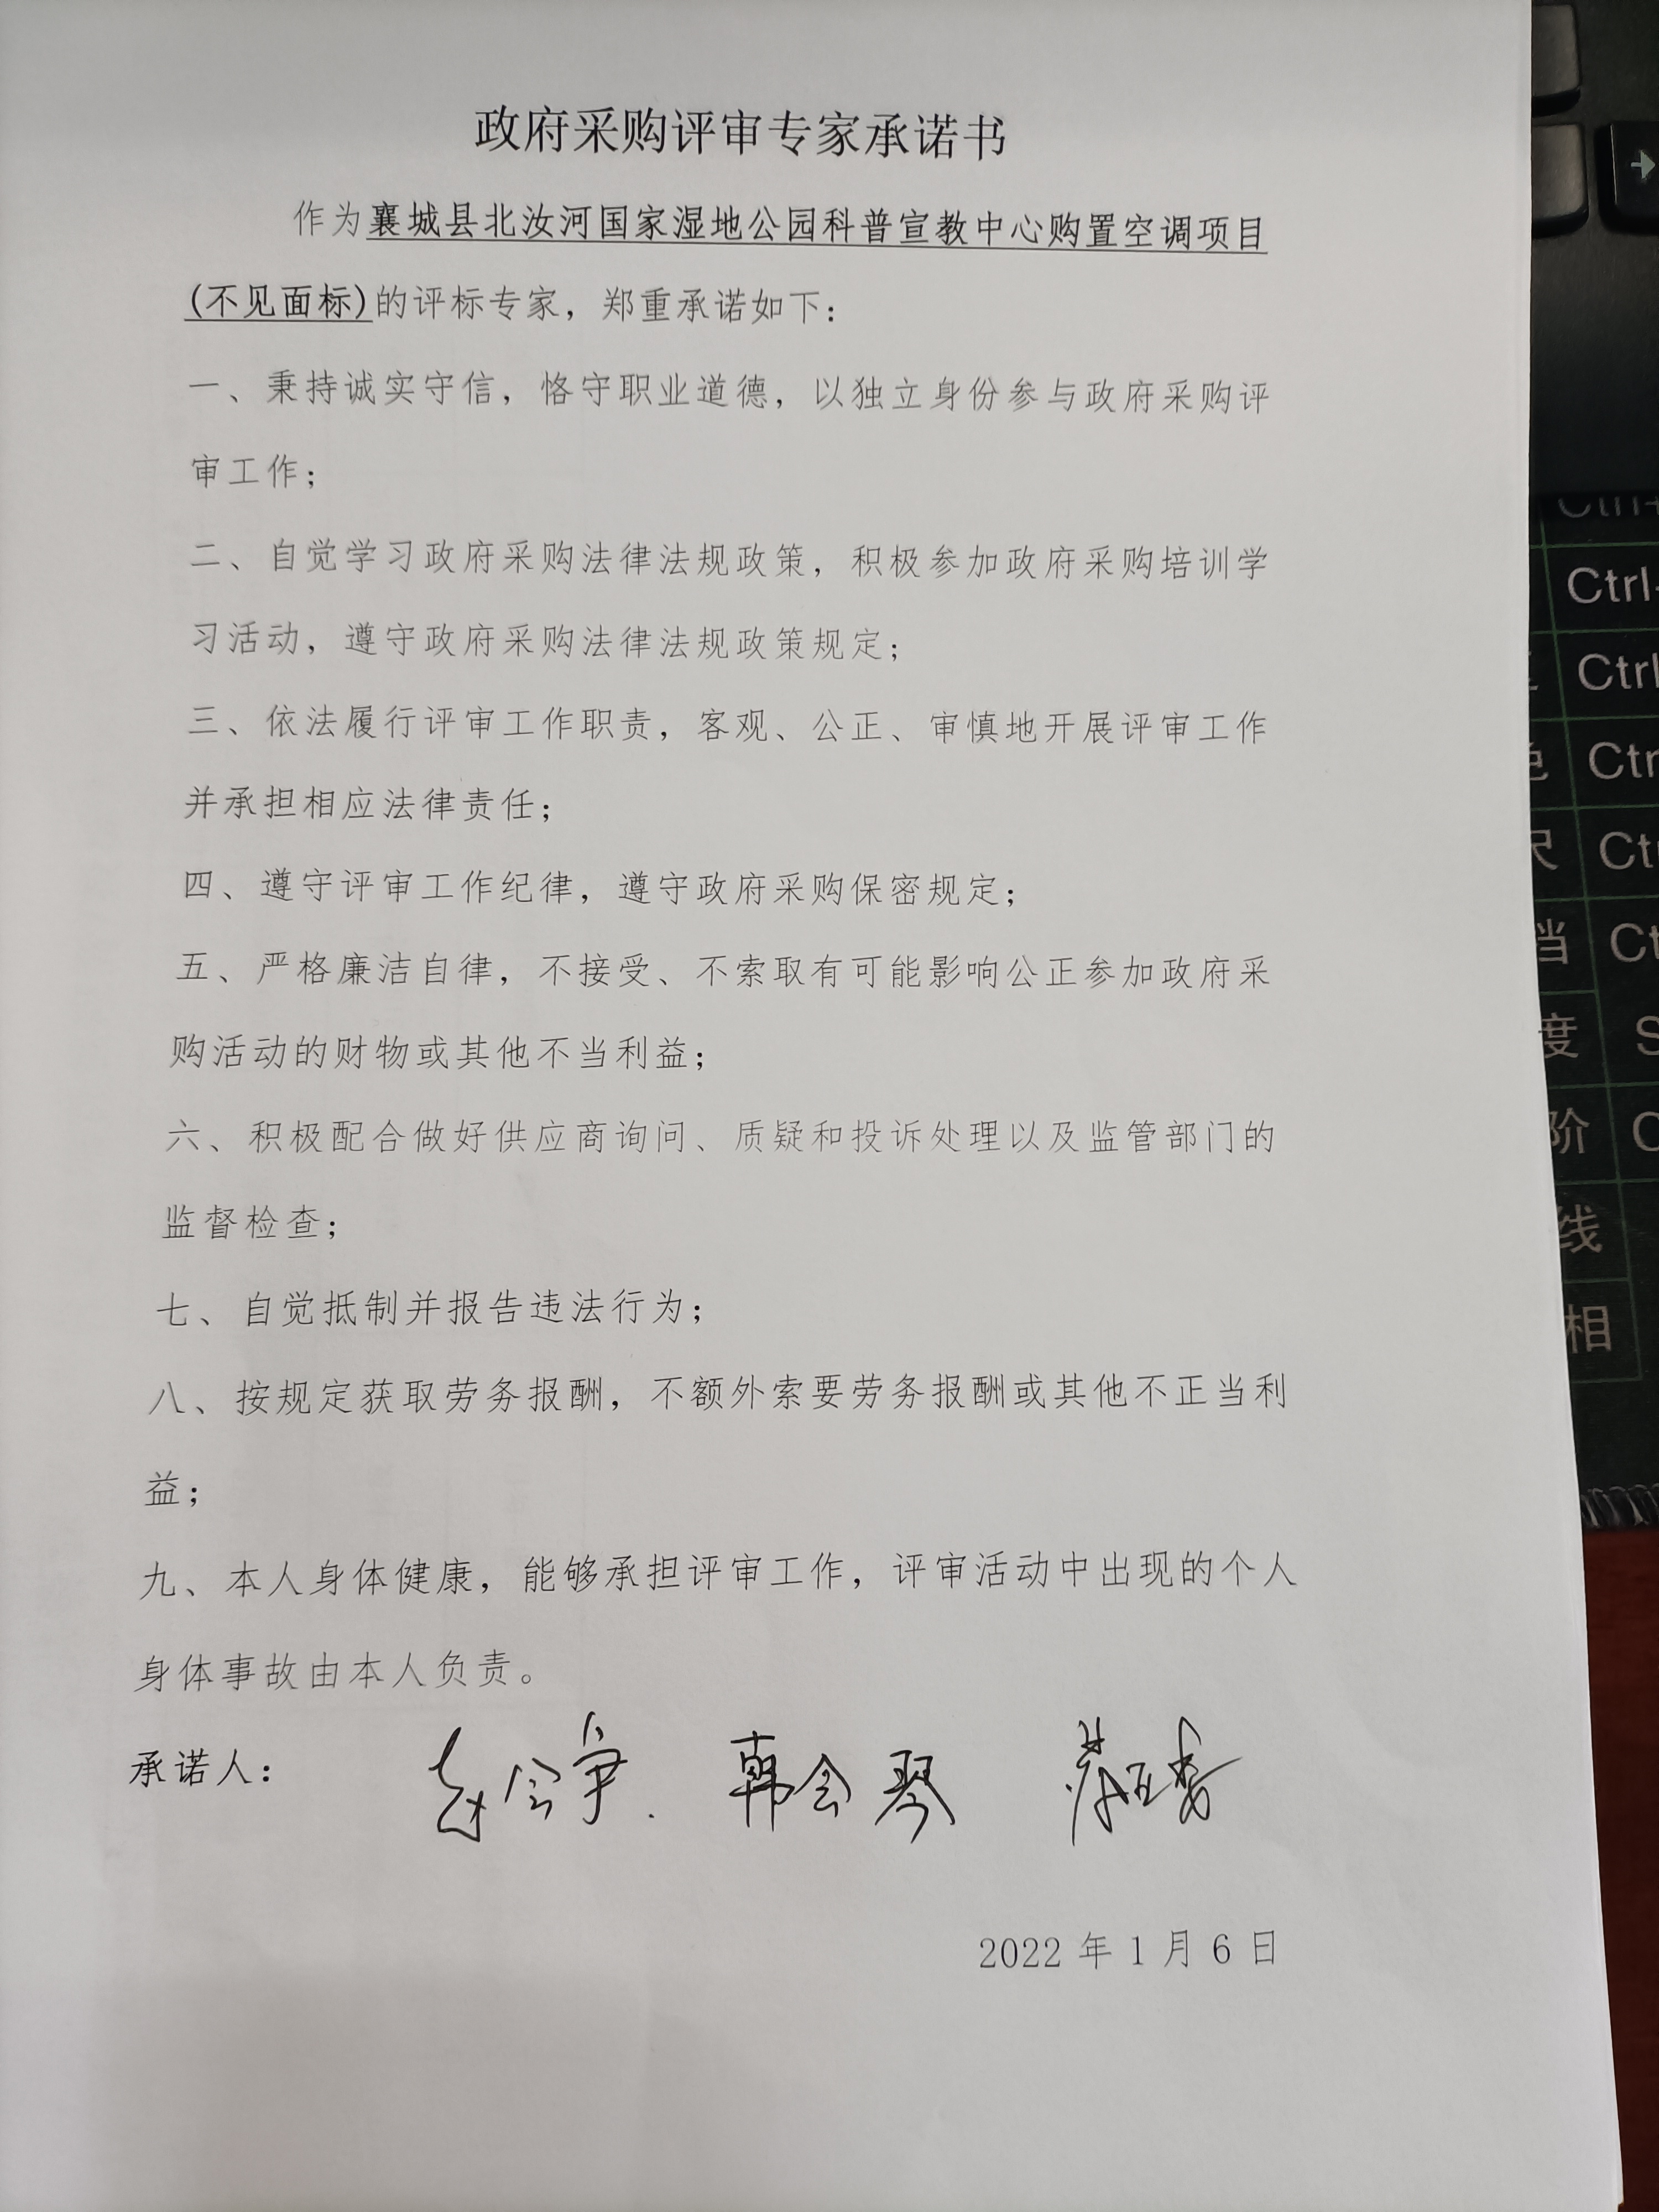 政府采购评审专家承诺书
作为襄城县北汝河国家湿地公园科普宣教中心购置空调项目
(不见面标)的评标专家，郑重承诺如下：
一、秉持诚实守信，恪守职业道德，以独立身份参与政府采购评
审工作；
二、自觉学习政府采购法律法规政策，积极参加政府采购培训学
习活动，遵守政府采购法律法规政策规定；
三、依法履行评审工作职责，客观、公正、审慎地开展评审工作
并承担相应法律责任；
四、遵守评审工作纪律，遵守政府采购保密规定；
五、严格廉洁自律，不接受、不索取有可能影响公正参加政府采
购活动的财物或其他不当利益；
六、积极配合做好供应商询问、质疑和投诉处理以及监管部门的
监督检查；
七、自觉抵制并报告违法行为；
八、按规定获取劳务报酬，不额外索要劳务报酬或其他不正当利
益；
九、本人身体健康，能够承担评审工作，评审活动中出现的个人
身体事故由本人负责。
承诺人： 赵会争 韩会琴
2022 年 1 月 6 日
Ctrl
Ctrl
Ctr
Ct
档 Ct
度 S
阶 C
线
相